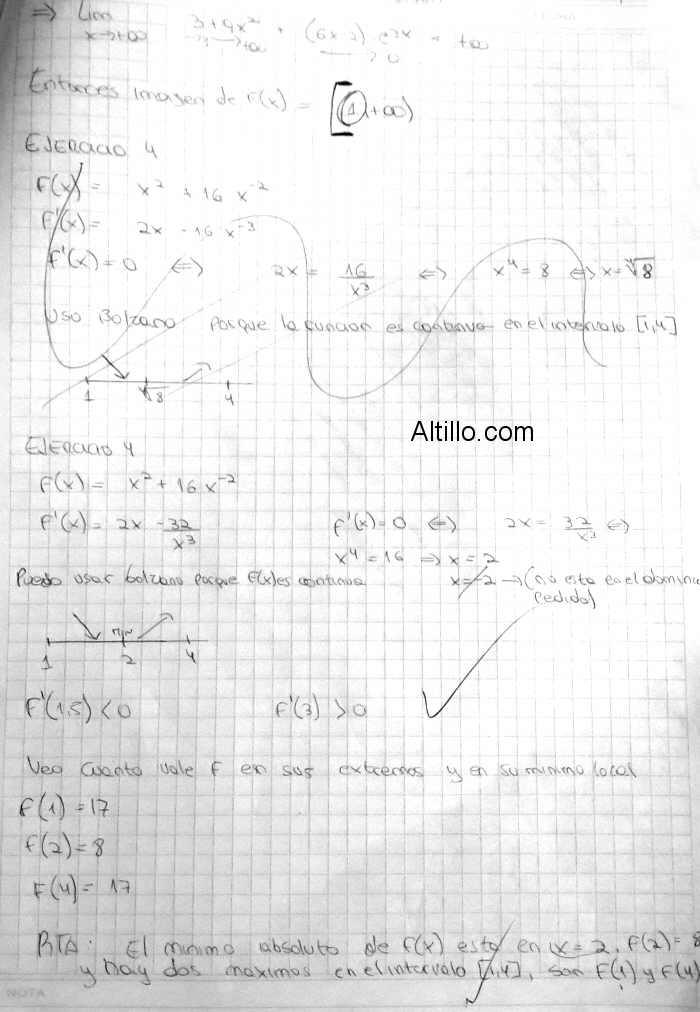 ⇒ Lim x→+∞ 3+9x² + (6x 2) e^3x = +∞
→+∞ → 0
Entonces Imagen de F(x) = [1,+∞)
EJERCICIO 4
F(x) = x² + 16 x⁻²
F'(x) = 2x - 16 x⁻³
F'(x) = 0 ⇔ 2x = 16/x³ ⇔ x⁴ = 8 ⇔ x = ∜8
Uso Bolzano porque la funcion es continua en el intervalo [1,4]
1 ∜8 4
Altillo.com
EJERCICIO 4
F(x) = x² + 16 x⁻²
F'(x) = 2x - 32/x³ F'(x) = 0 ⇔ 2x = 32/x³ ⇔
x⁴ = 16 ⇒ x = 2
Puedo usar bolzano porque F(x) es continua x = -2 → (no esta en el dominio
pedido)
min
1 2 4
F'(1,5) < 0 F'(3) > 0
Veo cuanto vale F en sus extremos y en su minimo local
F(1) = 17
F(2) = 8
F(4) = 17
RTA: El minimo absoluto de F(x) esta en x = 2, F(2) = 8
y hay dos maximos en el intervalo [1,4], son F(1) y F(4)
NOTA